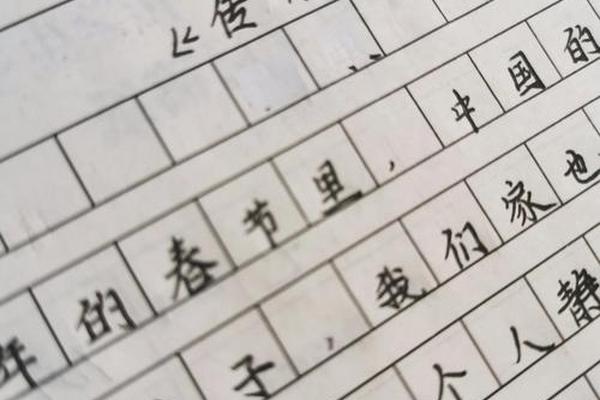 《传
年的春节里，中国的
子，我们家也
个人静